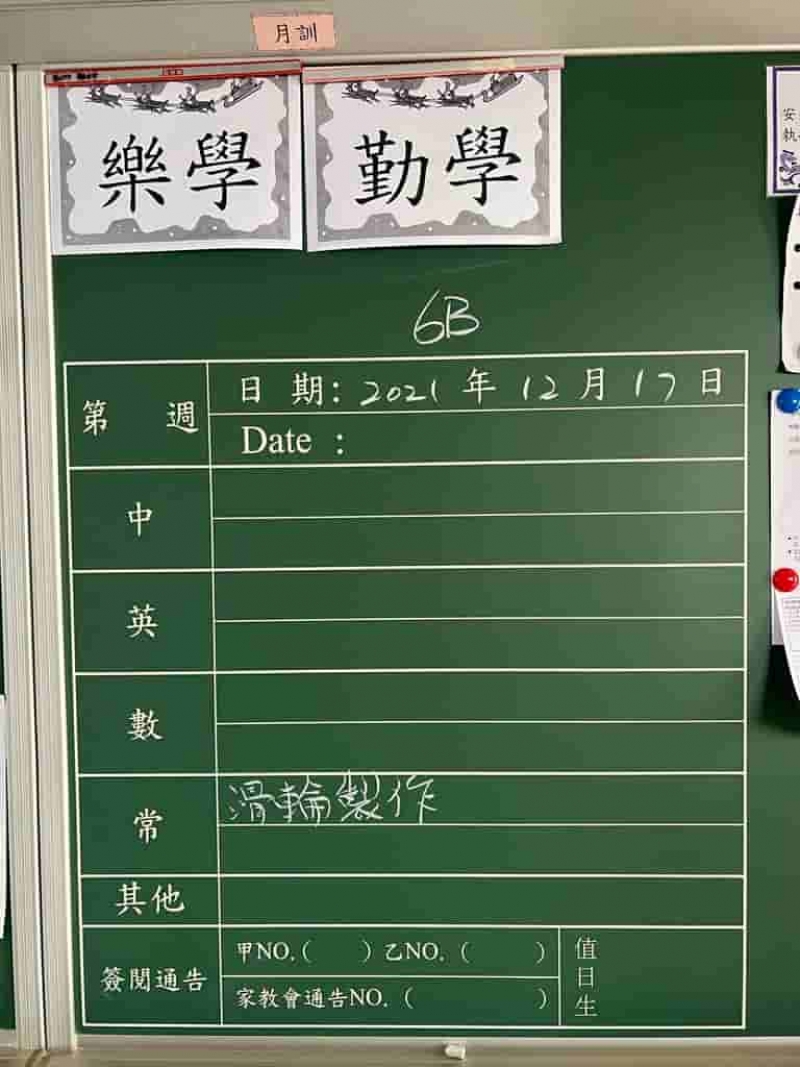 月訓
樂學
勤學
6B
第 週
日 期: 2021 年 12 月 17 日
Date :
中
英
數
常
滑輪製作
其他
簽閱通告
甲NO.( ) 乙NO. ( )
家教會通告NO. ( )
值日生
安
執